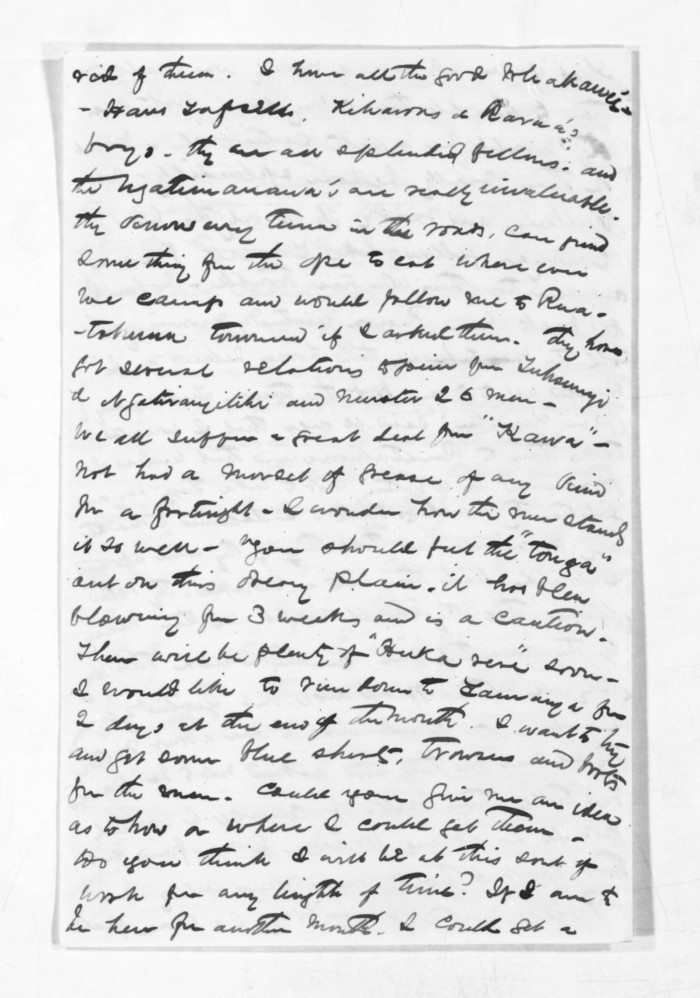 rid of them. I have all the good Whakaweh-
- Hans Tapsell, Kiharoas & Rawa's
boys - they are all splendid fellows. and
the Ngatimanawa's are really invaluable.
they know every turn in the roads, can find
something for the ope to eat where ever
we camp and would follow me to Rua-
-tahuna tomorrow if I asked them. They have
got several relations to join from Tuhourangi
& Ngatirangitihi and muster 26 men -
We all suffer a great deal from "Kawa" -
not had a morsel of grease of any kind
for a fortnight - I wonder how the men stand
it so well - "you should feel the "tonga"
out on this dreary plain. it has been
blowing for 3 weeks and is a caution.
There will be plenty of "Huka rere" soon -
I would like to run down to Tauranga for
2 days at the end of the month. I want to try
and get some blue shirts, trowsers and boots
for the men. Could you give me an idea
as to how or where I could get them -
Do you think I will be at this sort of
work for any length of time? If I am to
be here for another month. I could get a